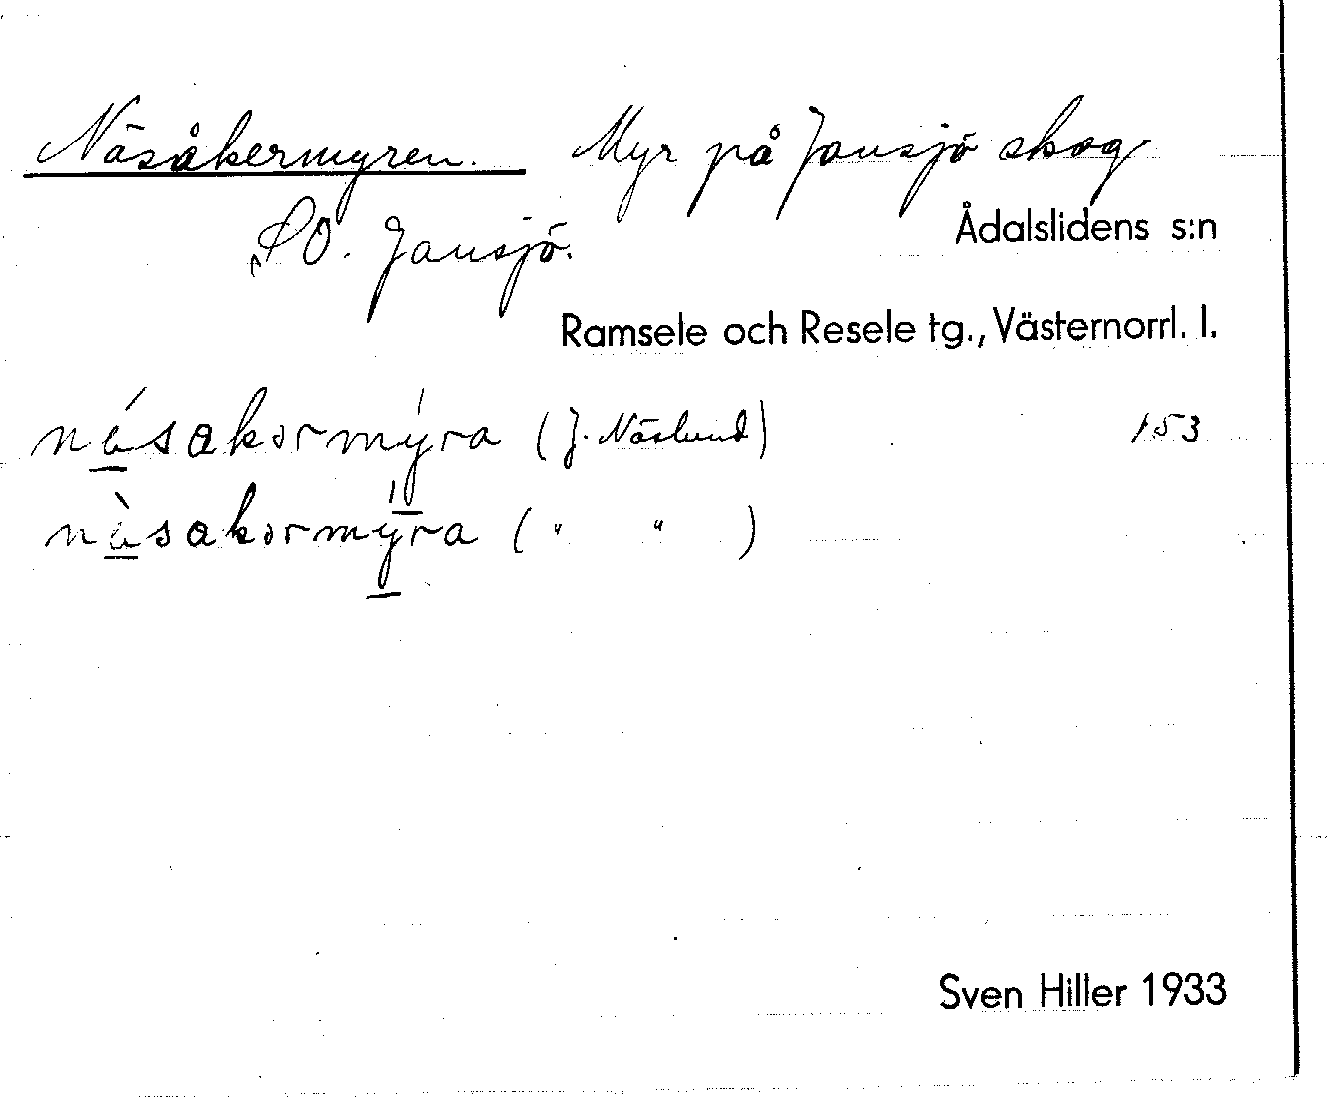 Näsåkermyren. Myr på Jansjö skog
SO. Jansjö.
Ådalslidens s:n
Ramsele och Resele tg., Västernorrl. l.
násakərmýra (J. Näslund) 153
nàsakərmýra ( " " )
Sven Hiller 1933